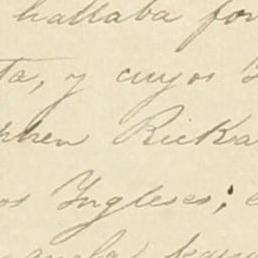 hallaba for
ta, y cuyos
phen Ricka
os Yngleses;